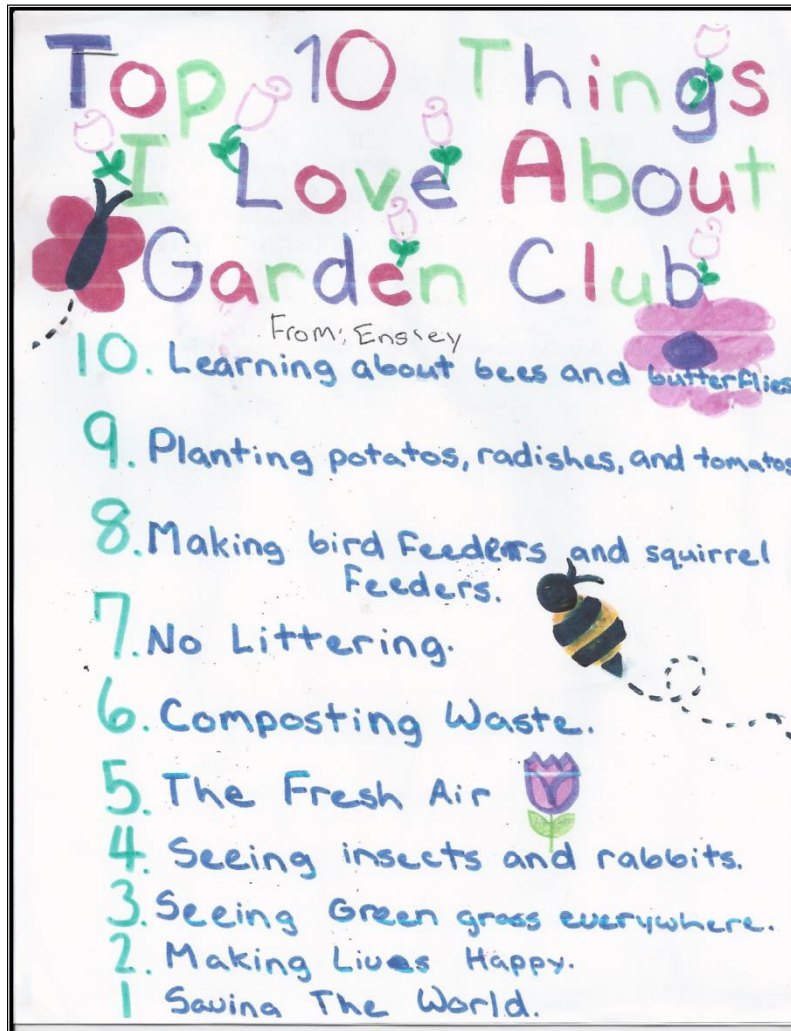 Top 10 Things
I Love About
Garden Club
From: Ensley
10. Learning about bees and butterflies
9. Planting potatos, radishes, and tomatos
8. Making bird Feeders and squirrel
Feeders.
7. No Littering.
6. Composting Waste.
5. The Fresh Air
4. Seeing insects and rabbits.
3. Seeing Green grass everywhere.
2. Making Lives Happy.
1 Saving The World.